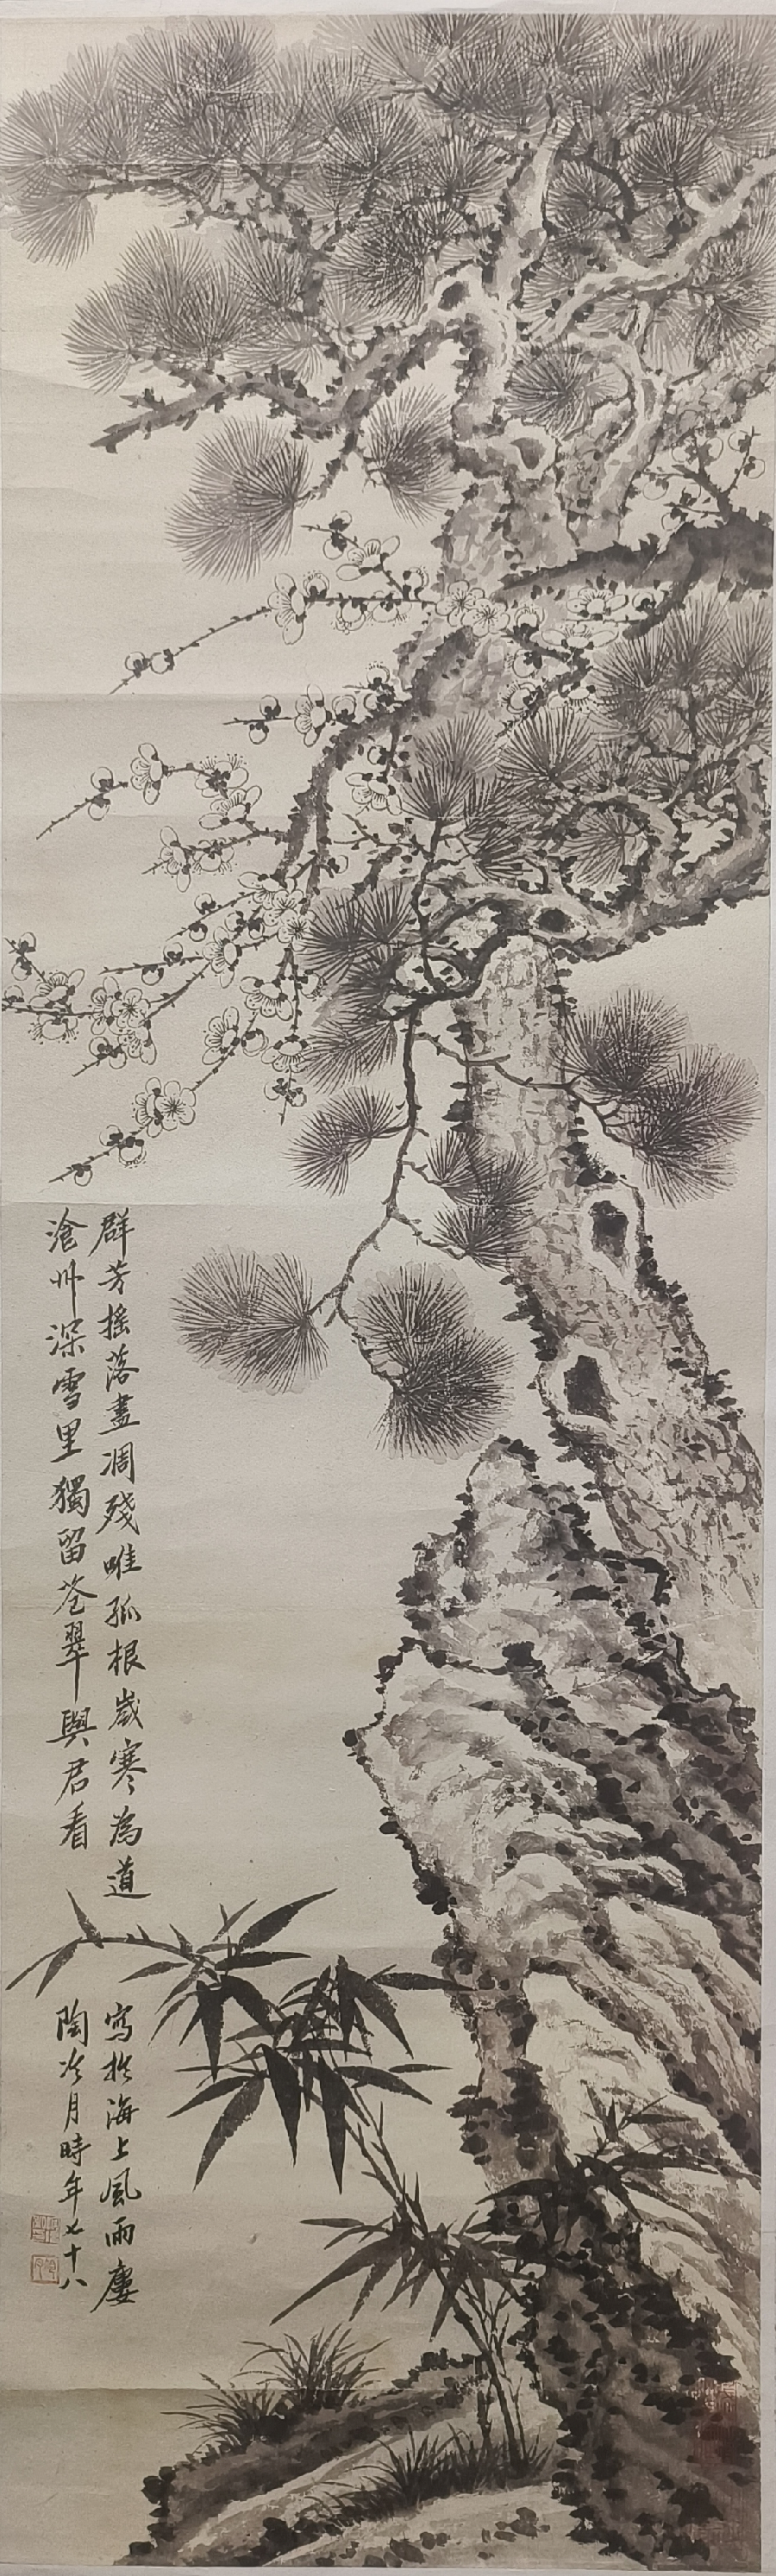 群芳摇落盡凋殘唯孤根歲寒為道
滄州深雪里獨留苍翠與君看
寫於海上風雨廔
陶冷月時年七十八